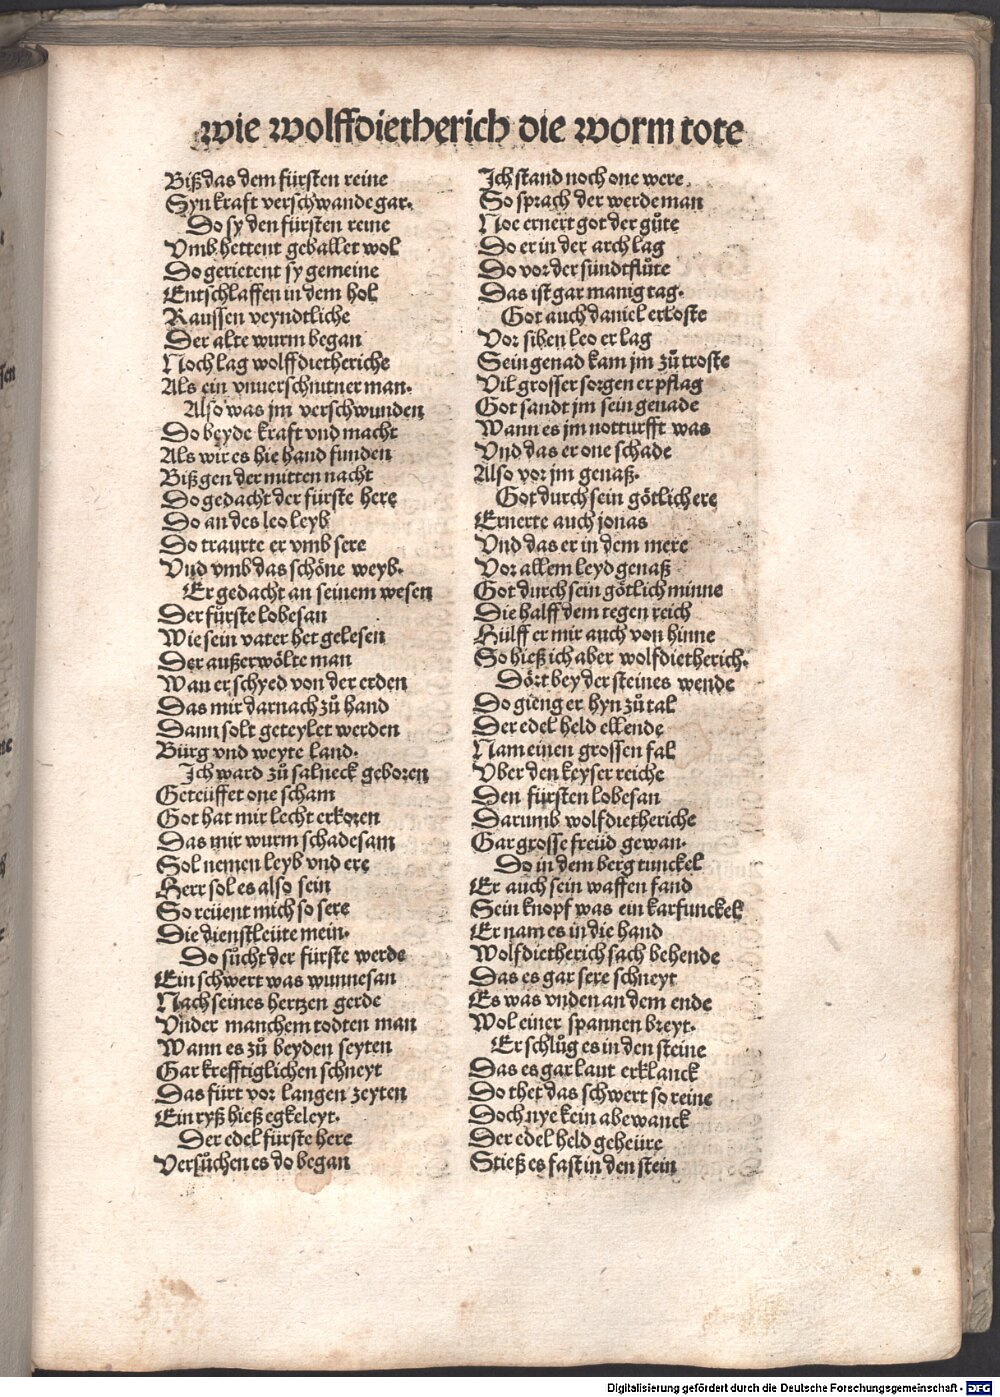 wie wolffdietherich die worm tote
Biß das dem fürsten reine
Syn kraft verschwande gar.
Do sy den fürsten reine
Vmb hettent geballet wol
Do gerietent sy gemeine
Entschlaffen in dem hol
Raussen veyndtliche
Der alte wurm began
Noch lag wolffdietheriche
Als ein vnuerschnitner man.
Also was jm verschwunden
Do beyde kraft vnd macht
Als wir es hie hand funden
Biß gen der mitten nacht
Do gedacht der fürste here
Do an des leo leyb
Do traurte er vmb sere
Vnd vmb das schöne weyb.
Er gedacht an seinem wesen
Der fürste lobesan
Wie sein vater het gelesen
Der außerwölte man
Wan er schyed von der erden
Das mir darnach zů hand
Dann solt geteylet werden
Bürg vnd weyte land.
Ich ward zů salneck geboren
Geteüffet one scham
Got hat mir lecht erkoren
Das mir wurm schadesam
Sol nemen leyb vnd ere
Herr sol es also sein
So reüent mich so sere
Die dienstleüte mein.
Do sůcht der fürste werde
Ein schwert was wunnesan
Nach seines hertzen gerde
Vnder manchem todten man
Wann es zů beyden seyten
Gar krefftiglichen schneyt
Das fürt vor langen zeyten
Ein ryß hieß egkeleyt.
Der edel fürste here
Versůchen es do began
Ich stand noch one were
So sprach der werde man
Noe ernert got der gůte
Do er in der arch lag
Do vor der sündtflůte
Das ist gar manig tag.
Got auch daniel erloste
Vor siben leo er lag
Sein genad kam jm zů troste
Vil grosser sorgen er pflag
Got sandt jm sein genade
Wann es jm notturfft was
Vnd das er one schade
Also vor jm genaß.
Got durch sein götlich ere
Ernerte auch jonas
Vnd das er in dem mere
Vor allem leyd genaß
Got durch sein götlich minne
Die halff dem tegen reich
Hülff er mir auch von hinne
So hieß ich aber wolfdietherich.
Dört bey der steines wende
Do gieng er hyn zů tal
Der edel held ellende
Nam einen grossen fal
Vber den keyser reiche
Den fürsten lobesan
Darumb wolfdietheriche
Gar grosse freüd gewan.
Do in dem berg tunckel
Er auch sein waffen fand
Sein knopf was ein karfunckel
Er nam es in die hand
Wolfdietherich sach behende
Das es gar sere schneyt
Es was vnden an dem ende
Wol einer spannen breyt.
Er schlůg es in den steine
Das es gar laut erklanck
Do thet das schwert so reine
Doch nye kein abewanck
Der edel held geheüre
Stieß es fast in den stein
Digitalisierung gefördert durch die Deutsche Forschungsgemeinschaft - DFG